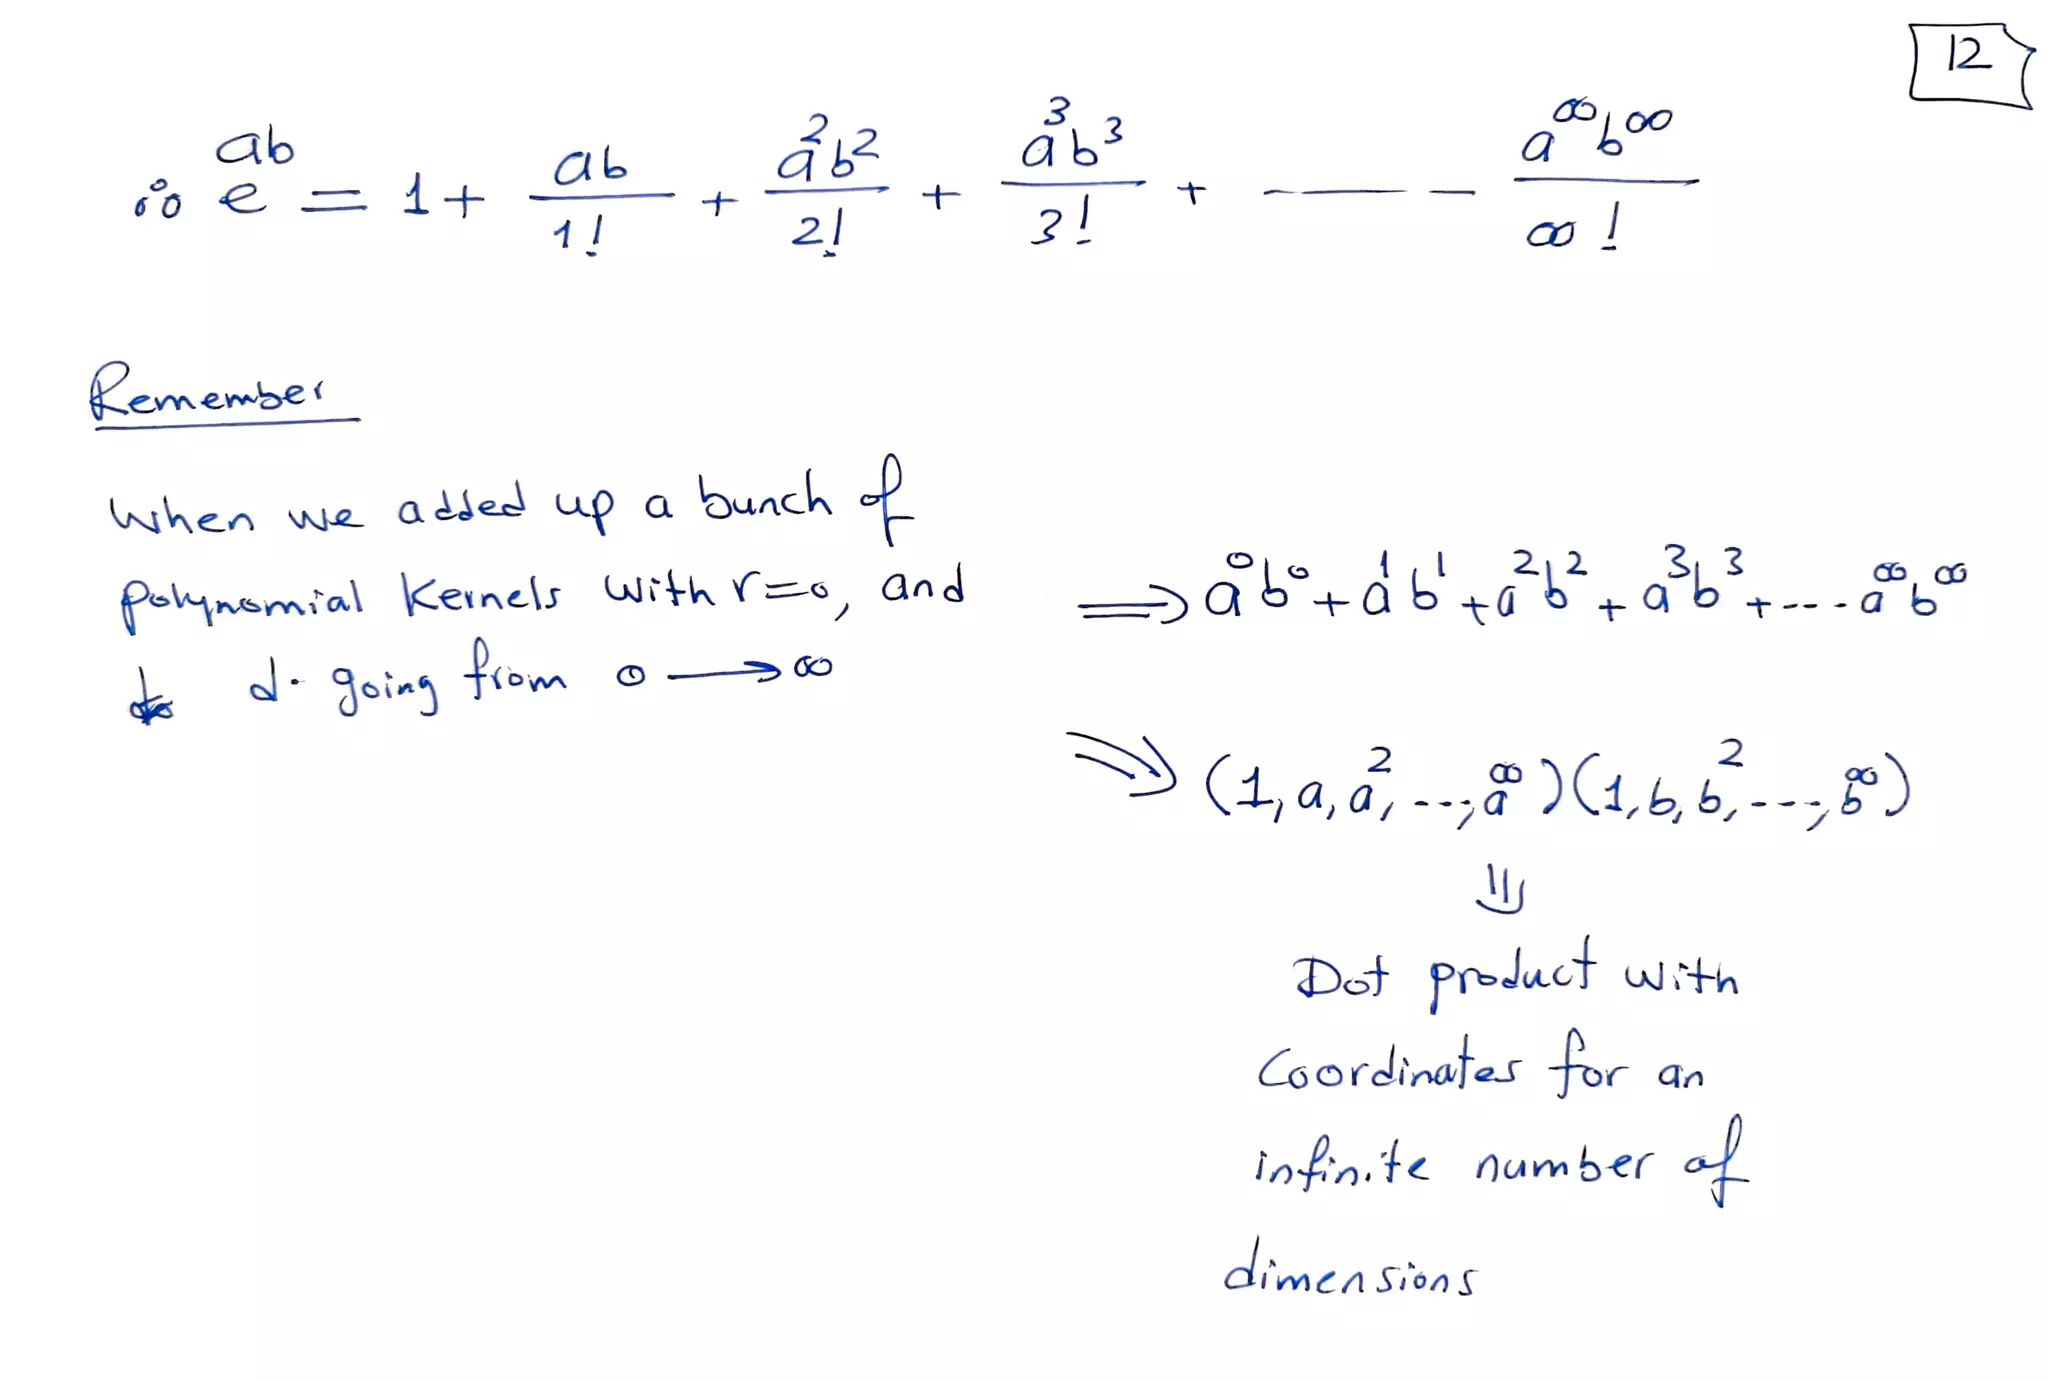 12
∴ e^{ab} = 1 + ab/1! + a²b²/2! + a³b³/3! + ---- a^∞b^∞/∞!
Remember
When we added up a bunch of
polynomial Kernels with r=0, and
d. going from 0 → ∞
⇒ a⁰b⁰ + a¹b¹ + a²b² + a³b³ + ---- a^∞b^∞
⇒ (1, a, a², ---, a^∞)(1, b, b², ---, b^∞)
⇓
Dot product with
Coordinates for an
infinite number of
dimensions